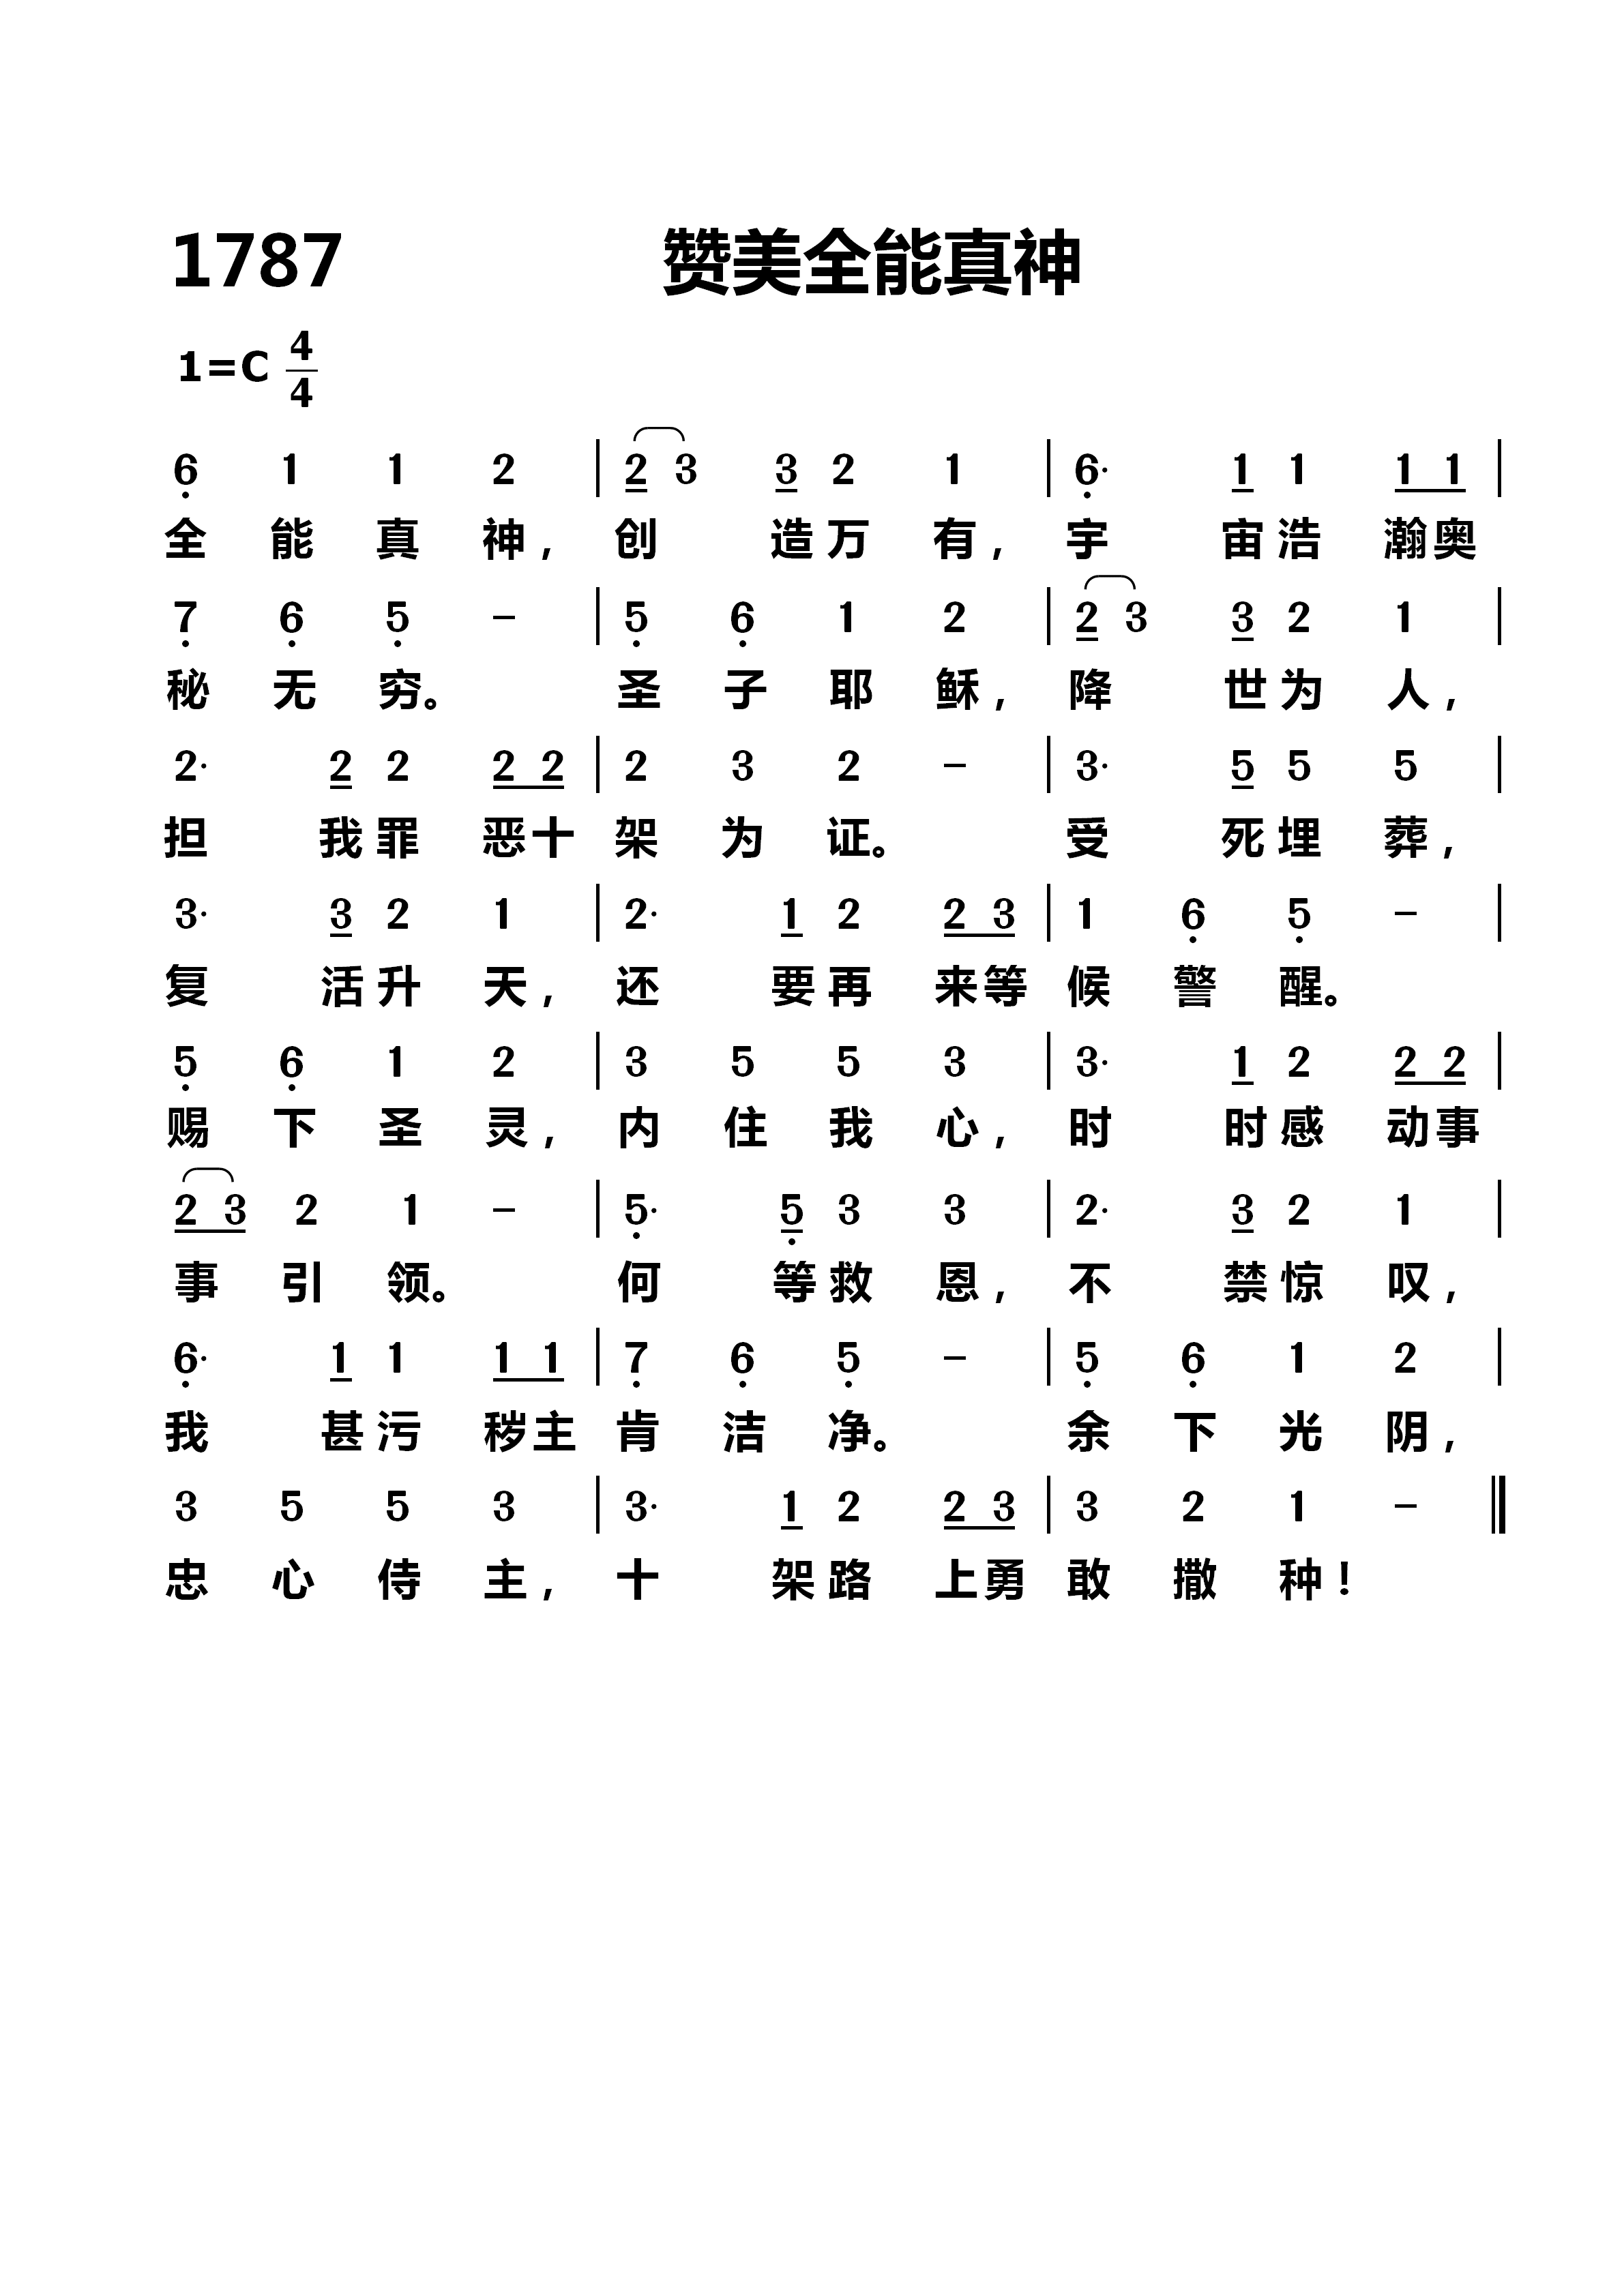 1787 赞美全能真神
1=C 4/4
6̣ 1 1 2 | 2 3 3 2 1 | 6̣· 1 1 1 1 |
全 能 真 神， 创 造 万 有， 宇 宙 浩 瀚 奥
7̣ 6̣ 5̣ – | 5̣ 6̣ 1 2 | 2 3 3 2 1 |
秘 无 穷。 圣 子 耶 稣， 降 世 为 人，
2· 2 2 2 2 | 2 3 2 – | 3· 5 5 5 |
担 我 罪 恶 十 架 为 证。 受 死 埋 葬，
3· 3 2 1 | 2· 1 2 2 3 | 1 6̣ 5̣ – |
复 活 升 天， 还 要 再 来 等 候 警 醒。
5̣ 6̣ 1 2 | 3 5 5 3 | 3· 1 2 2 2 |
赐 下 圣 灵， 内 住 我 心， 时 时 感 动 事
2 3 2 1 – | 5̣· 5̣ 3 3 | 2· 3 2 1 |
事 引 领。 何 等 救 恩， 不 禁 惊 叹，
6̣· 1 1 1 1 | 7̣ 6̣ 5̣ – | 5̣ 6̣ 1 2 |
我 甚 污 秽 主 肯 洁 净。 余 下 光 阴，
3 5 5 3 | 3· 1 2 2 3 | 3 2 1 – ‖
忠 心 侍 主， 十 架 路 上 勇 敢 撒 种！